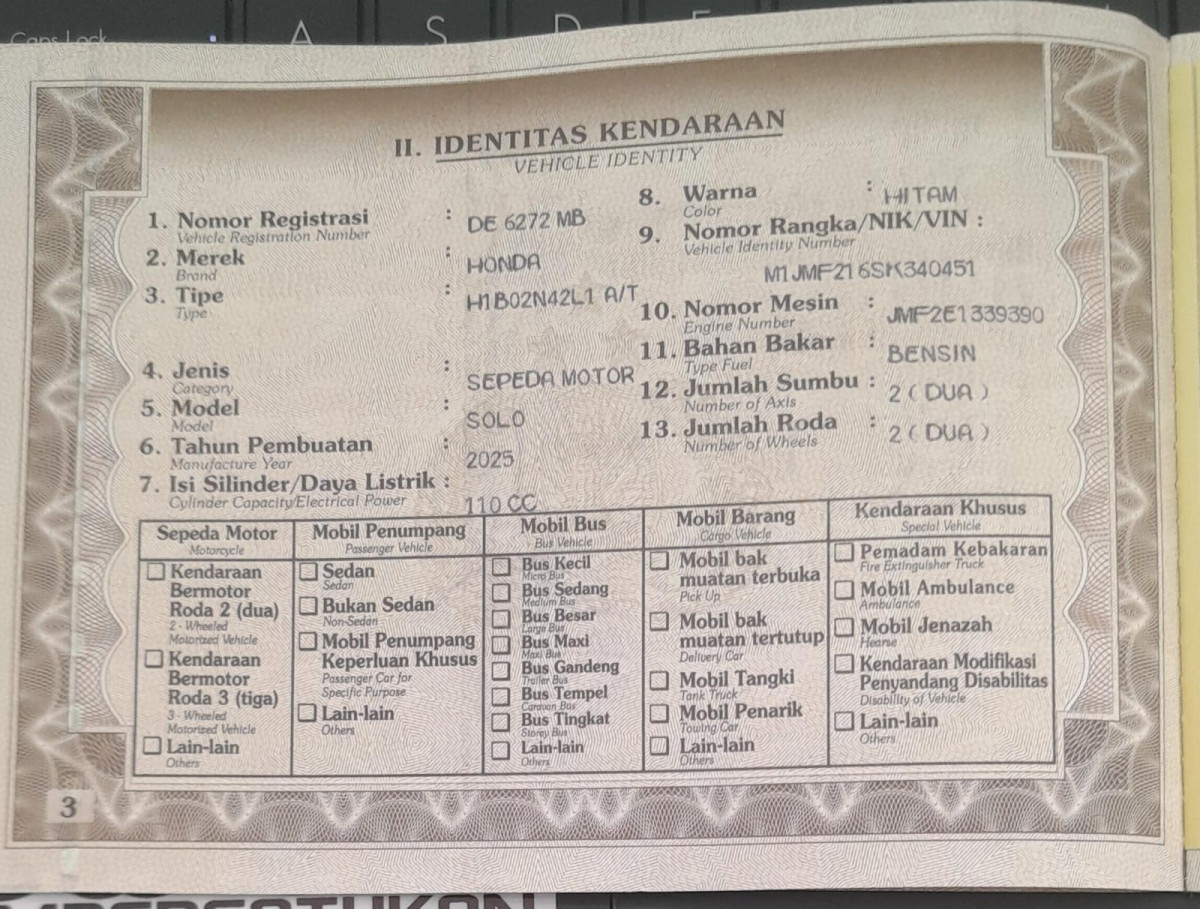 Caps Lock
A
S
D
II. IDENTITAS KENDARAAN
VEHICLE IDENTITY
1. Nomor Registrasi : DE 6272 MB
Vehicle Registration Number
2. Merek : HONDA
Brand
3. Tipe : H1B02N42L1 A/T
Type
4. Jenis : SEPEDA MOTOR
Category
5. Model : SOLO
Model
6. Tahun Pembuatan : 2025
Manufacture Year
7. Isi Silinder/Daya Listrik : 110 CC
Cylinder Capacity/Electrical Power
8. Warna : HITAM
Color
9. Nomor Rangka/NIK/VIN :
Vehicle Identity Number
M1JMF216SK340451
10. Nomor Mesin : JMF2E1339390
Engine Number
11. Bahan Bakar : BENSIN
Type Fuel
12. Jumlah Sumbu : 2 ( DUA )
Number of Axis
13. Jumlah Roda : 2 ( DUA )
Number of Wheels
Sepeda Motor
Motorcycle
Kendaraan
Bermotor
Roda 2 (dua)
2 - Wheeled
Motorized Vehicle
Kendaraan
Bermotor
Roda 3 (tiga)
3 - Wheeled
Motorized Vehicle
Lain-lain
Others
Mobil Penumpang
Passenger Vehicle
Sedan
Sedan
Bukan Sedan
Non-Sedan
Mobil Penumpang
Keperluan Khusus
Passenger Car for
Specific Purpose
Lain-lain
Others
Mobil Bus
Bus Vehicle
Bus Kecil
Micro Bus
Bus Sedang
Medium Bus
Bus Besar
Large Bus
Bus Maxi
Maxi Bus
Bus Gandeng
Trailer Bus
Bus Tempel
Caravan Bus
Bus Tingkat
Storey Bus
Lain-lain
Others
Mobil Barang
Cargo Vehicle
Mobil bak
muatan terbuka
Pick Up
Mobil bak
muatan tertutup
Delivery Car
Mobil Tangki
Tank Truck
Mobil Penarik
Towing Car
Lain-lain
Others
Kendaraan Khusus
Special Vehicle
Pemadam Kebakaran
Fire Extinguisher Truck
Mobil Ambulance
Ambulance
Mobil Jenazah
Hearse
Kendaraan Modifikasi
Penyandang Disabilitas
Disability of Vehicle
Lain-lain
Others
3